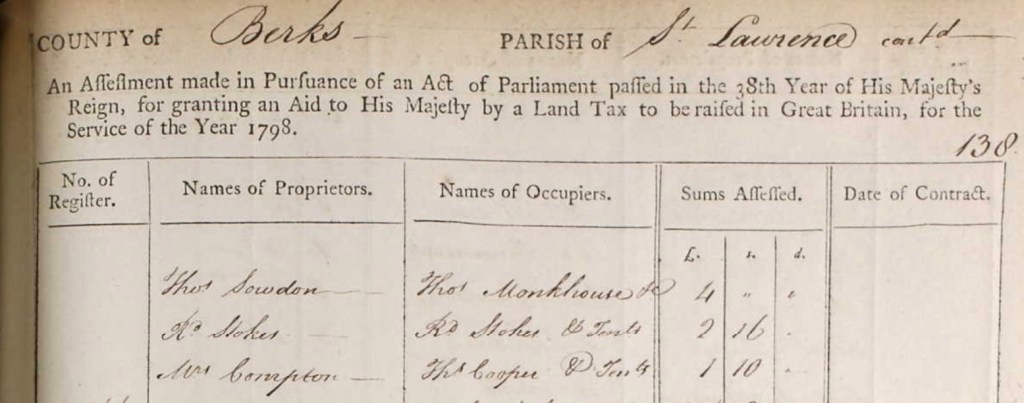 COUNTY of Berks PARISH of St Lawrence contd
An Aſſeſſment made in Purſuance of an Act of Parliament paſſed in the 38th Year of His Majeſty's
Reign, for granting an Aid to His Majeſty by a Land Tax to be raiſed in Great Britain, for the
Service of the Year 1798.
138
No. of Regiſter. Names of Proprietors. Names of Occupiers. Sums Aſſeſſed. Date of Contract.
£. s. d.
Thos Sowdon Thos Monkhouse &c 4 " "
Rd Stokes Rd Stokes & Tents 2 16 .
Mrs Compton Ths Cooper & Tents 1 10 .